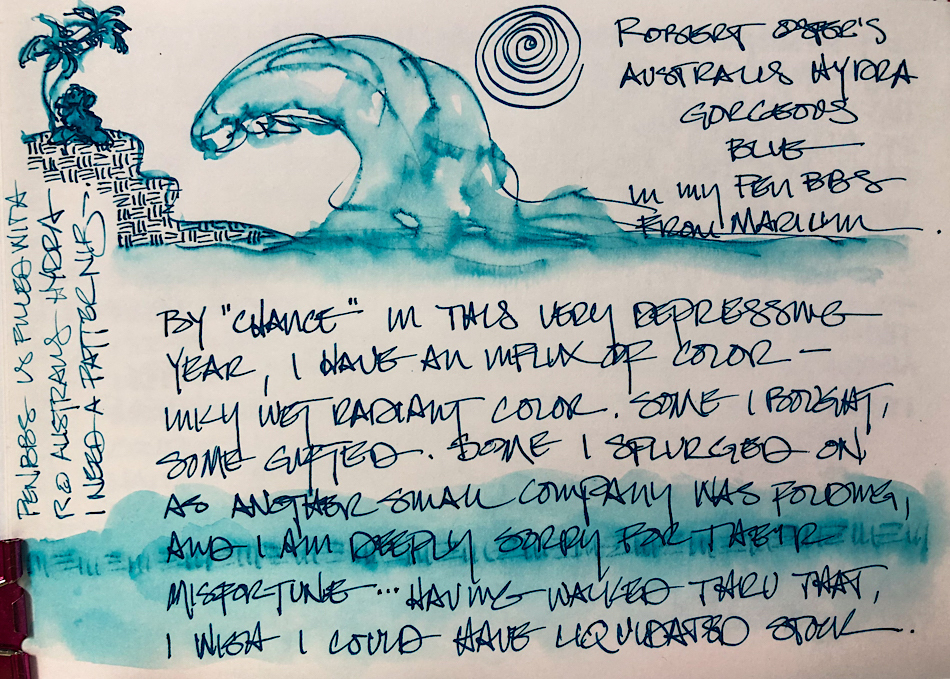 ROBERT OSTER'S
AUSTRALIS HYDRA
GORGEOUS
BLUE
IN MY PEN BBS
FROM MARILYN
PENBBS VS FILLED WITH
RO AUSTRALIS HYDRA
I NEED A PATTERN NIB →
BY "CHANCE" IN THIS VERY DEPRESSING
YEAR, I HAVE AN INFLUX OF COLOR —
INKY WET RADIANT COLOR. SOME I BOUGHT,
SOME GIFTED. SOME I SPLURGED ON
AS ANOTHER SMALL COMPANY WAS FOLDING,
AND I AM DEEPLY SORRY FOR THEIR
MISFORTUNE ... HAVING WALKED THRU THAT,
I WISH I COULD HAVE LIQUIDATED STOCK.